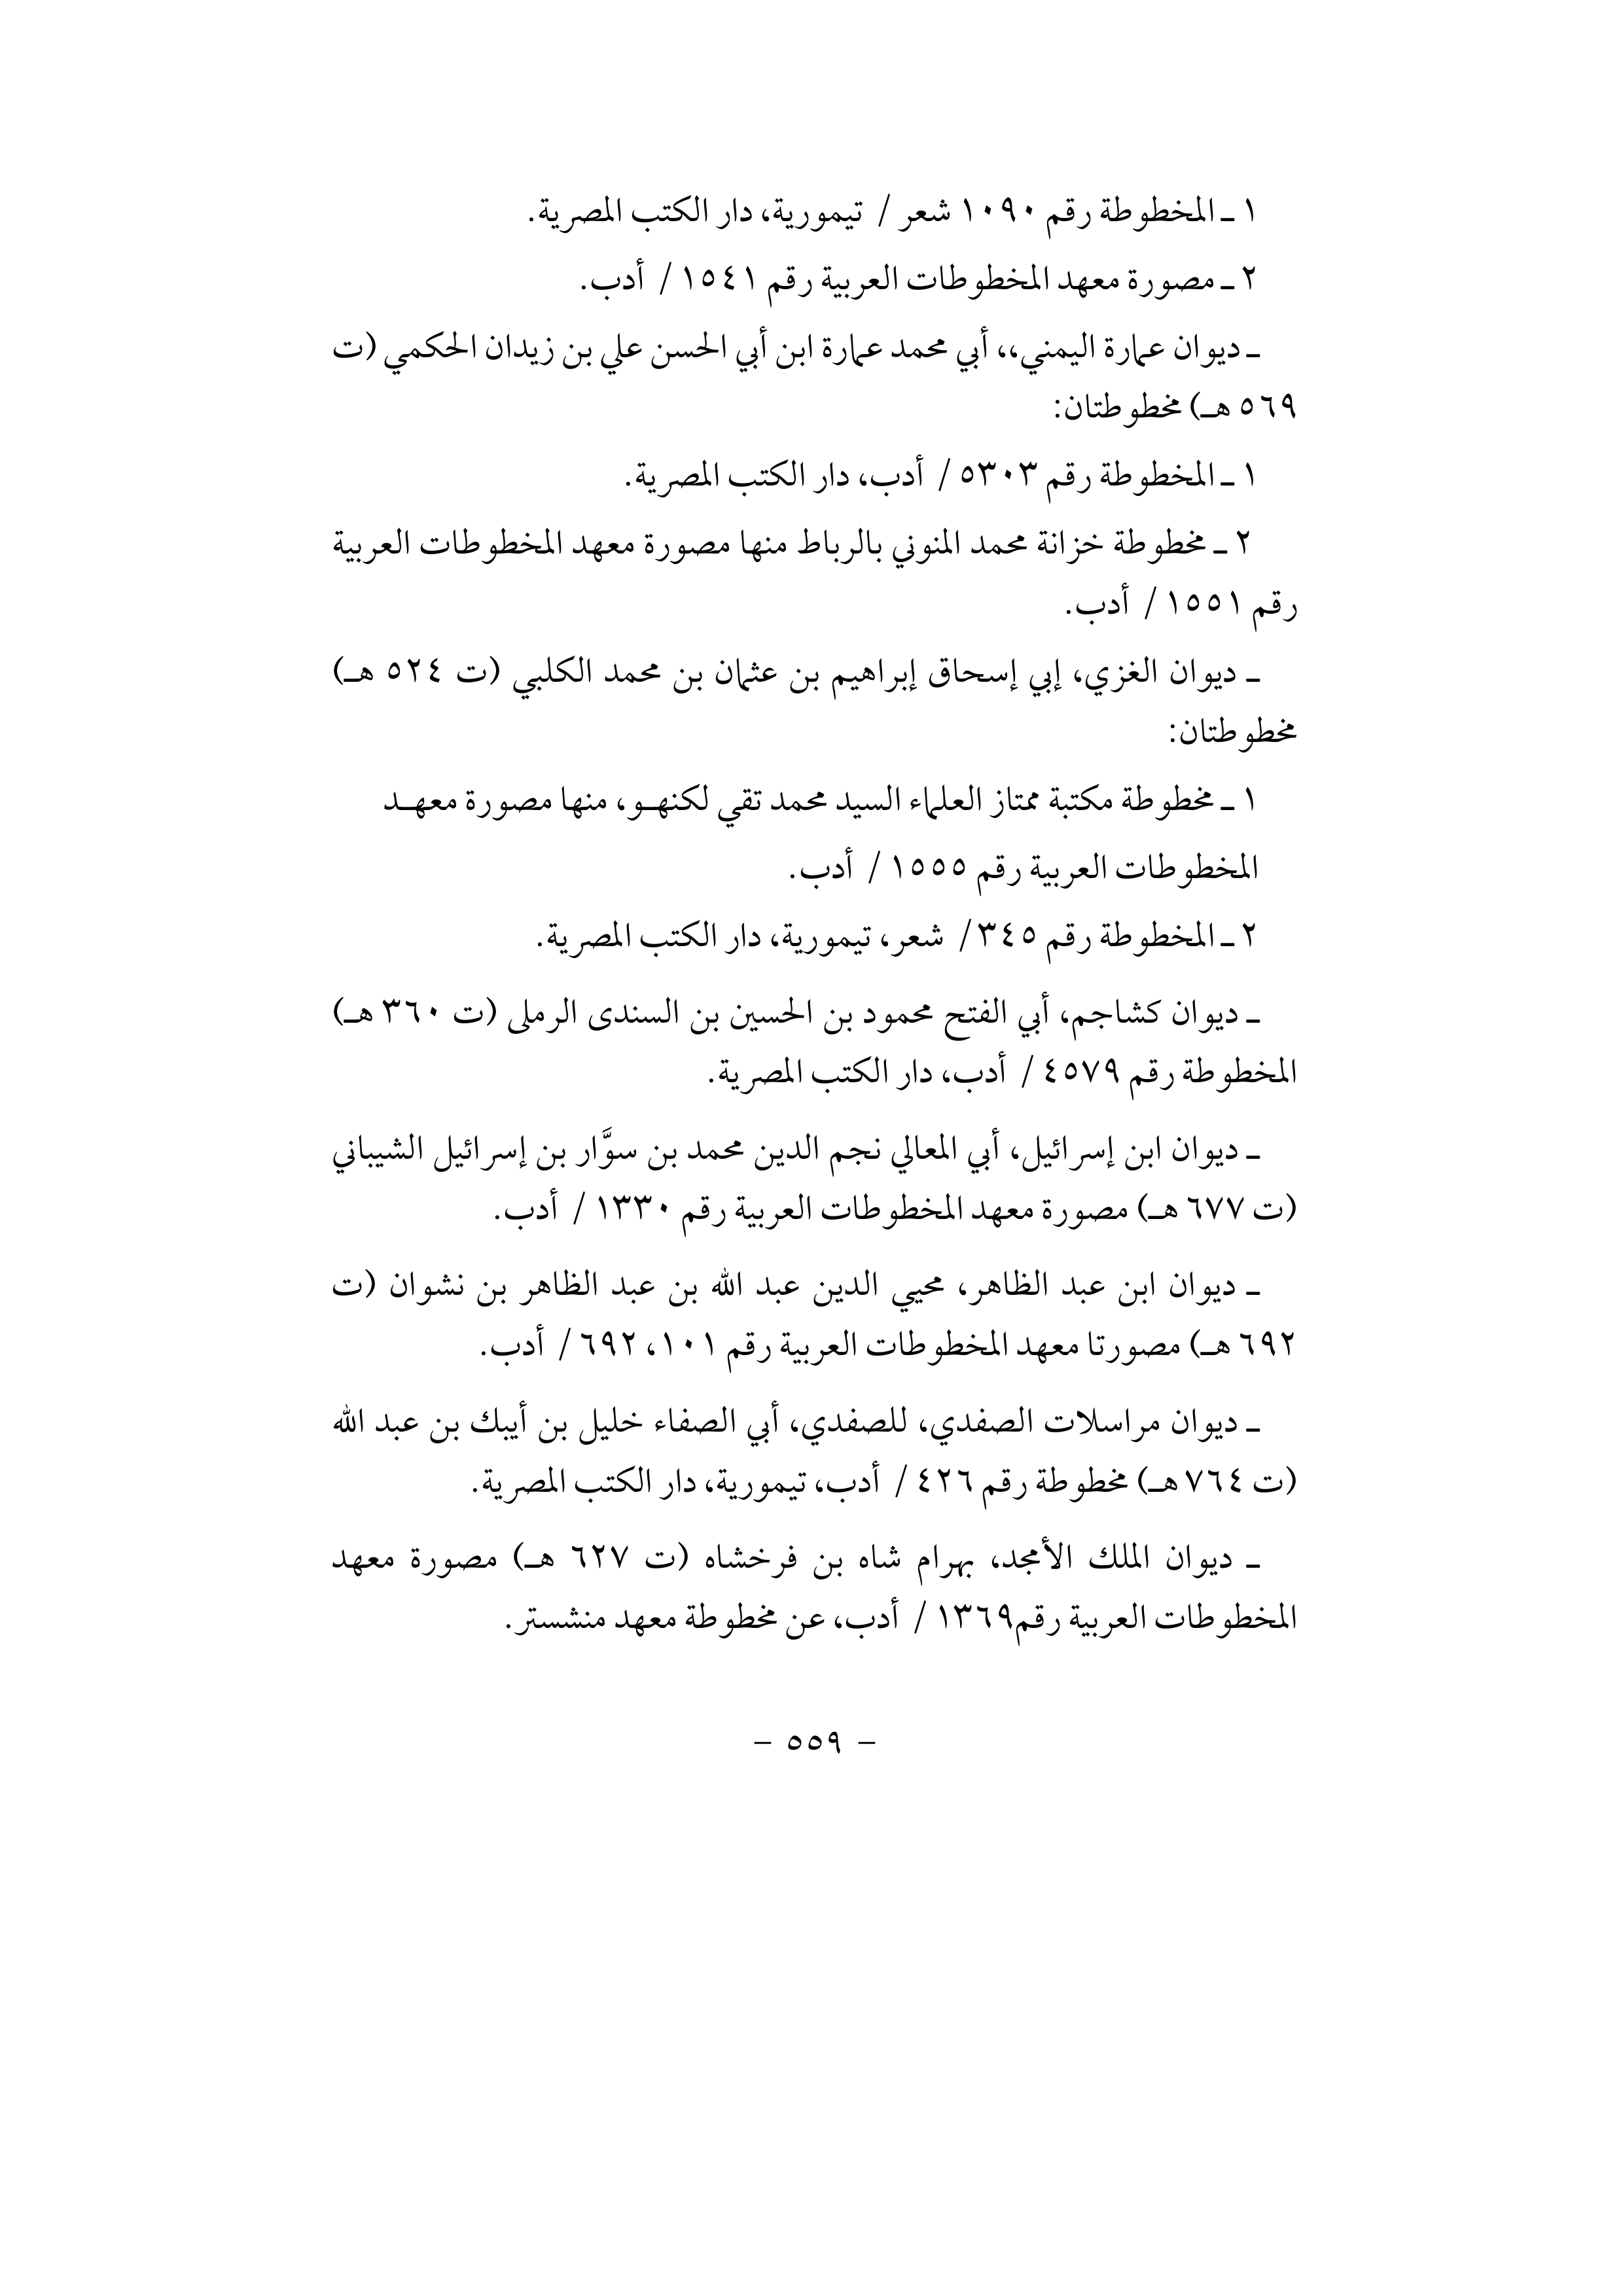 ١ ـ المخطوطة رقم ١٠٩٠ شعر / تيمورية، دار الكتب المصرية.
٢ ـ مصورة معهد المخطوطات العربية رقم ١٥٤١ / أدب.
ـ ديوان عمارة اليمني،، أبي محمد عمارة ابن أبي الحسن علي بن زيدان الحكمي (ت
٥٦٩ هـ) مخطوطتان:
١ ـ المخطوطة رقم ٥٣٠٣ / أدب، دار الكتب المصرية.
٢ ـ مخطوطة خزانة محمد المنوني بالرباط منها مصورة معهد المخطوطات العربية
رقم ١٥٥١ / أدب.
ـ ديوان الغزي، إبي إسحاق إبراهيم بن عثمان بن محمد الكلبي (ت ٥٢٤ هـ)
مخطوطتان:
١ ـ مخطوطة مكتبة ممتاز العلماء السيد محمد تقي لكنهـو، منها مصورة معهـد
المخطوطات العربية رقم ١٥٥٥ / أدب.
٢ ـ المخطوطة رقم ٣٤٥/ شعر، تيمورية، دار الكتب المصرية.
ـ ديوان كشاجم، أبي الفتح محمود بن الحسين بن السندى الرملى (ت ٣٦٠ هـ)
المخطوطة رقم ٤٥٧٩ / أدب، دار الكتب المصرية.
ـ ديوان ابن إسرائيل، أبي المعالي نجم الدين محمد بن سوَّار بن إسرائيل الشيباني
(ت ٦٧٧ هـ) مصورة معهد المخطوطات العربية رقم ١٣٣٠ / أدب.
ـ ديوان ابن عبد الظاهر، محيي الدين عبد الله بن عبد الظاهر بن نشوان (ت
٦٩٢ هـ) مصورتا معهد المخطوطات العربية رقم ١٠١، ٦٩٢ / أدب.
ـ ديوان مراسلات الصفدي، للصفدي، أبي الصفاء خليل بن أيبك بن عبد الله
(ت ٧٦٤ هـ) مخطوطة رقم ٤٢٦ / أدب، تيمورية، دار الكتب المصرية.
ـ ديوان الملك الأمجد، بهرام شاه بن فرخشاه (ت ٦٢٧ هـ) مصورة معهد
المخطوطات العربية رقم١٣٦٩ / أدب، عن مخطوطة معهد منشستر.
- ٥٥٩ -